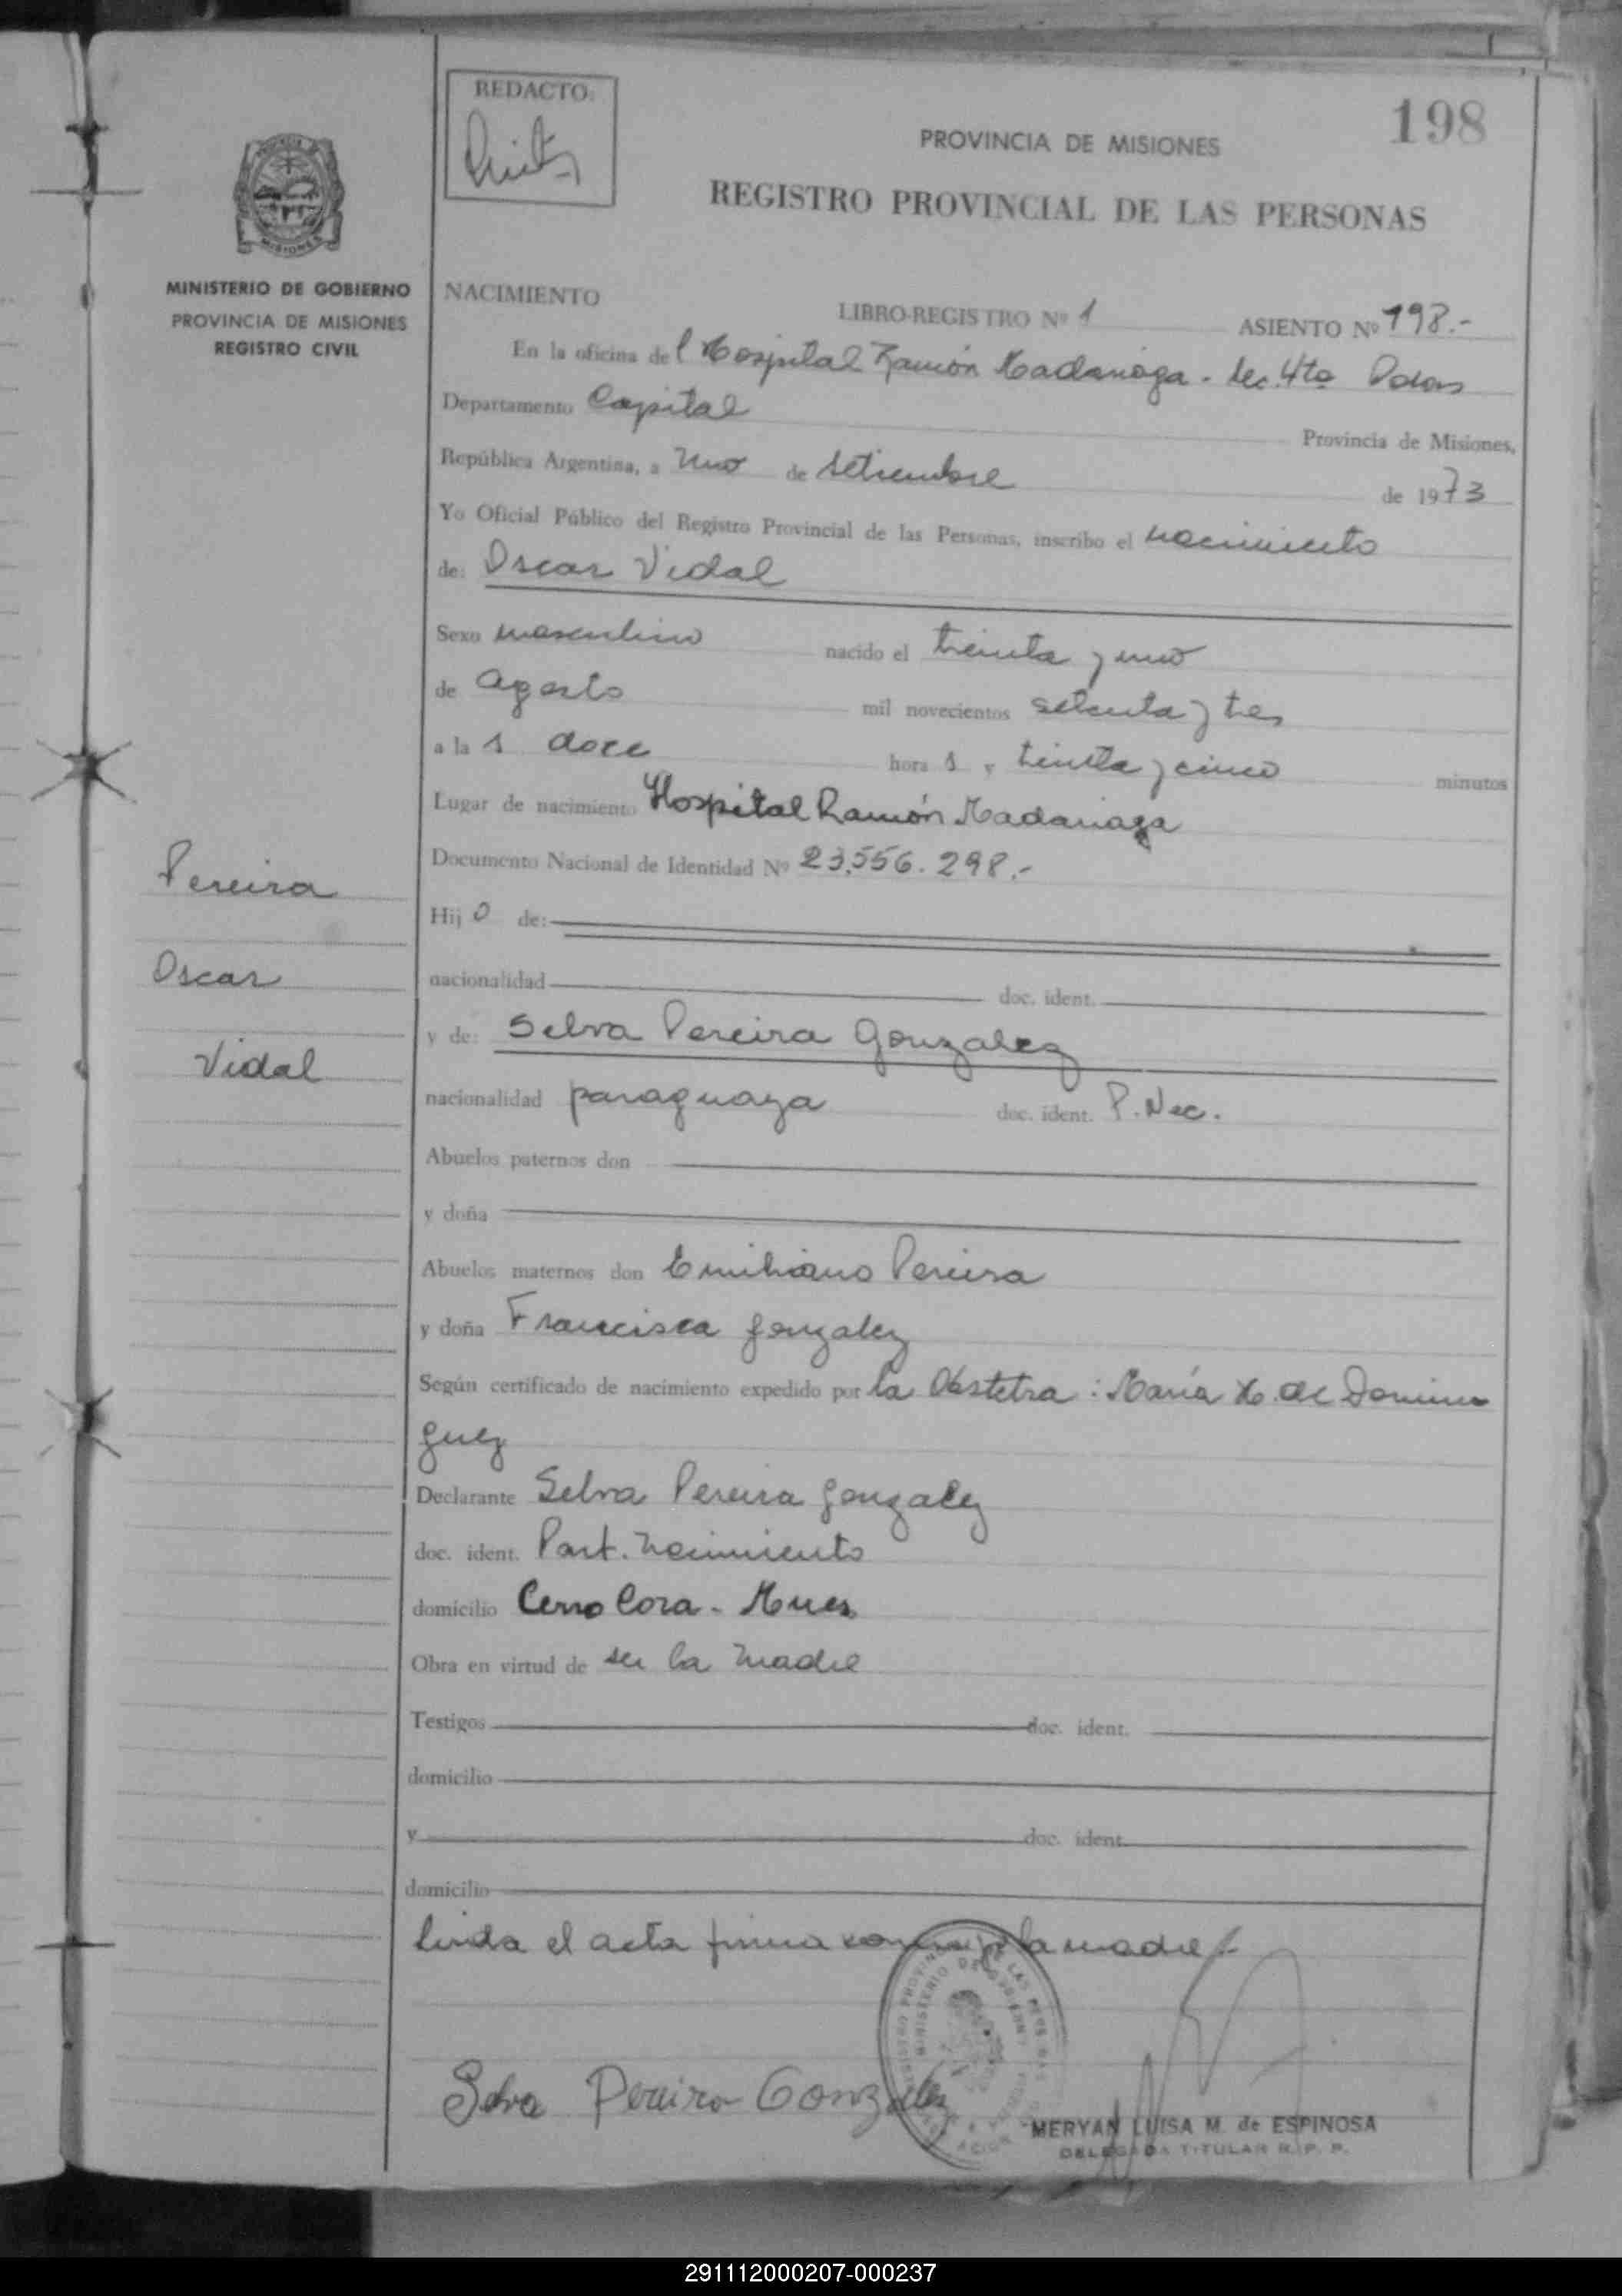 REDACTO:
198
PROVINCIA DE MISIONES
REGISTRO PROVINCIAL DE LAS PERSONAS
PROVINCIA DE
MISIONES
MINISTERIO DE GOBIERNO
PROVINCIA DE MISIONES
REGISTRO CIVIL
NACIMIENTO
LIBRO-REGISTRO Nº 1 ASIENTO Nº 198.-
En la oficina del Hospital Ramón Madariaga - Sec. 4ta Pdas
Departamento Capital Provincia de Misiones,
República Argentina, a uno de setiembre de 1973
Yo Oficial Público del Registro Provincial de las Personas, inscribo el nacimiento
de: Oscar Vidal
Sexo masculino nacido el treinta y uno
de agosto mil novecientos setenta y tres
a las doce horas y treinta y cinco minutos
Lugar de nacimiento Hospital Ramón Madariaga
Documento Nacional de Identidad Nº 23.556.298.-
Hijo de:
nacionalidad doc. ident.
y de: Selva Pereira Gonzalez
nacionalidad paraguaya doc. ident. P. Nac.
Abuelos paternos don
y doña
Abuelos maternos don Emiliano Pereira
y doña Francisca Gonzalez
Según certificado de nacimiento expedido por la Obstetra: María M. de Domin
guez
Declarante Selva Pereira Gonzalez
doc. ident. Part. Nacimiento
domicilio Cerro Cora - Mnes
Obra en virtud de ser la madre
Testigos doc. ident.
domicilio
y doc. ident.
domicilio
Leida el acta firma conmigo la madre.-
Pereira
Oscar
Vidal
Selva Pereira Gonzalez
MERYAN LUISA M. de ESPINOSA
DELEGADA TITULAR R. P. P.
291112000207-000237